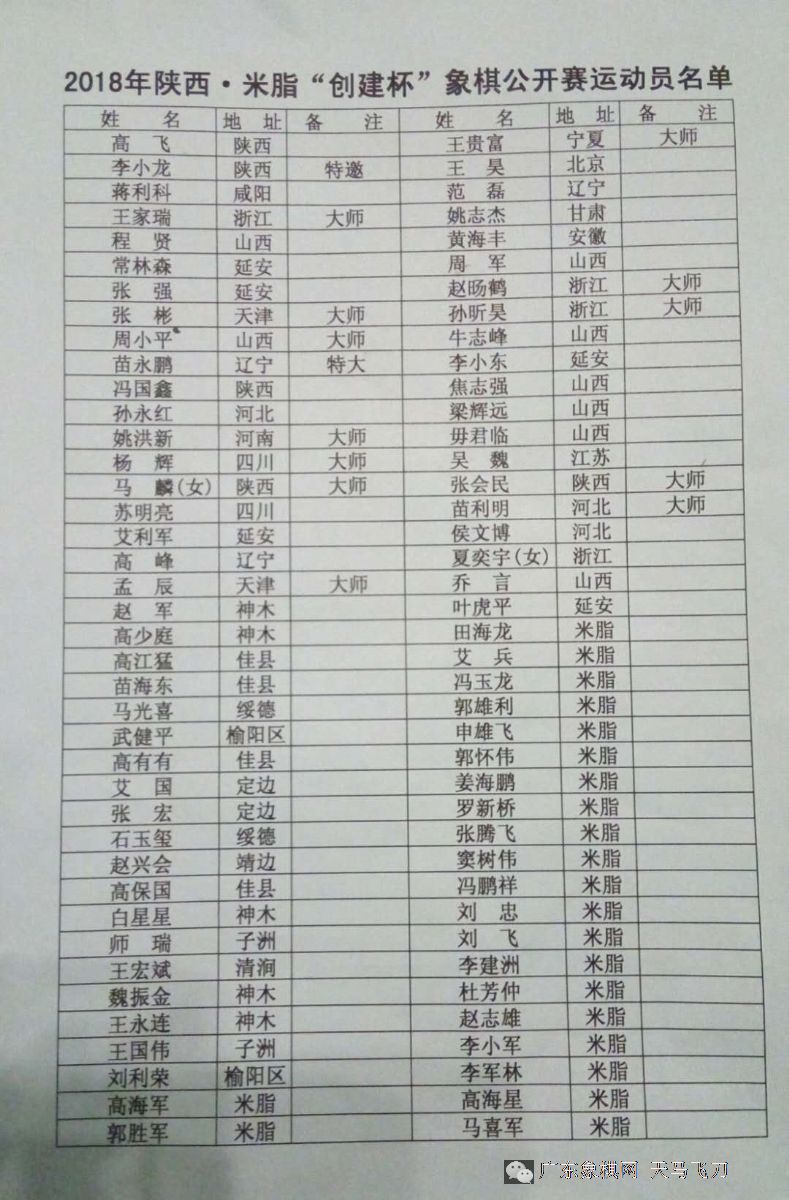 2018年陕西·米脂“创建杯”象棋公开赛运动员名单
姓 名 地 址 备 注 姓 名 地 址 备 注
高 飞 陕西 王贵富 宁夏 大师
李小龙 陕西 特邀 王 昊 北京
蒋利科 咸阳 范 磊 辽宁
王家瑞 浙江 大师 姚志杰 甘肃
程 贤 山西 黄海丰 安徽
常林森 延安 周 军 山西
张 强 延安 赵旸鹤 浙江 大师
张 彬 天津 大师 孙昕昊 浙江 大师
周小平 山西 大师 牛志峰 山西
苗永鹏 辽宁 特大 李小东 延安
冯国鑫 陕西 焦志强 山西
孙永红 河北 梁辉远 山西
姚洪新 河南 大师 毋君临 山西
杨 辉 四川 大师 吴 魏 江苏
马 麟(女) 陕西 大师 张会民 陕西 大师
苏明亮 四川 苗利明 河北 大师
艾利军 延安 侯文博 河北
高 峰 辽宁 夏奕宇(女) 浙江
孟 辰 天津 大师 乔 言 山西
赵 军 神木 叶虎平 延安
高少庭 神木 田海龙 米脂
高江猛 佳县 艾 兵 米脂
苗海东 佳县 冯玉龙 米脂
马光喜 绥德 郭雄利 米脂
武健平 榆阳区 申雄飞 米脂
高有有 佳县 郭怀伟 米脂
艾 国 定边 姜海鹏 米脂
张 宏 定边 罗新桥 米脂
石玉玺 绥德 张腾飞 米脂
赵兴会 靖边 窦树伟 米脂
高保国 佳县 冯鹏祥 米脂
白星星 神木 刘 忠 米脂
师 瑞 子洲 刘 飞 米脂
王宏斌 清涧 李建洲 米脂
魏振金 神木 杜芳仲 米脂
王永连 神木 赵志雄 米脂
王国伟 子洲 李小军 米脂
刘利荣 榆阳区 李军林 米脂
高海军 米脂 高海星 米脂
郭胜军 米脂 马喜军 米脂
广东象棋网 天马飞刀